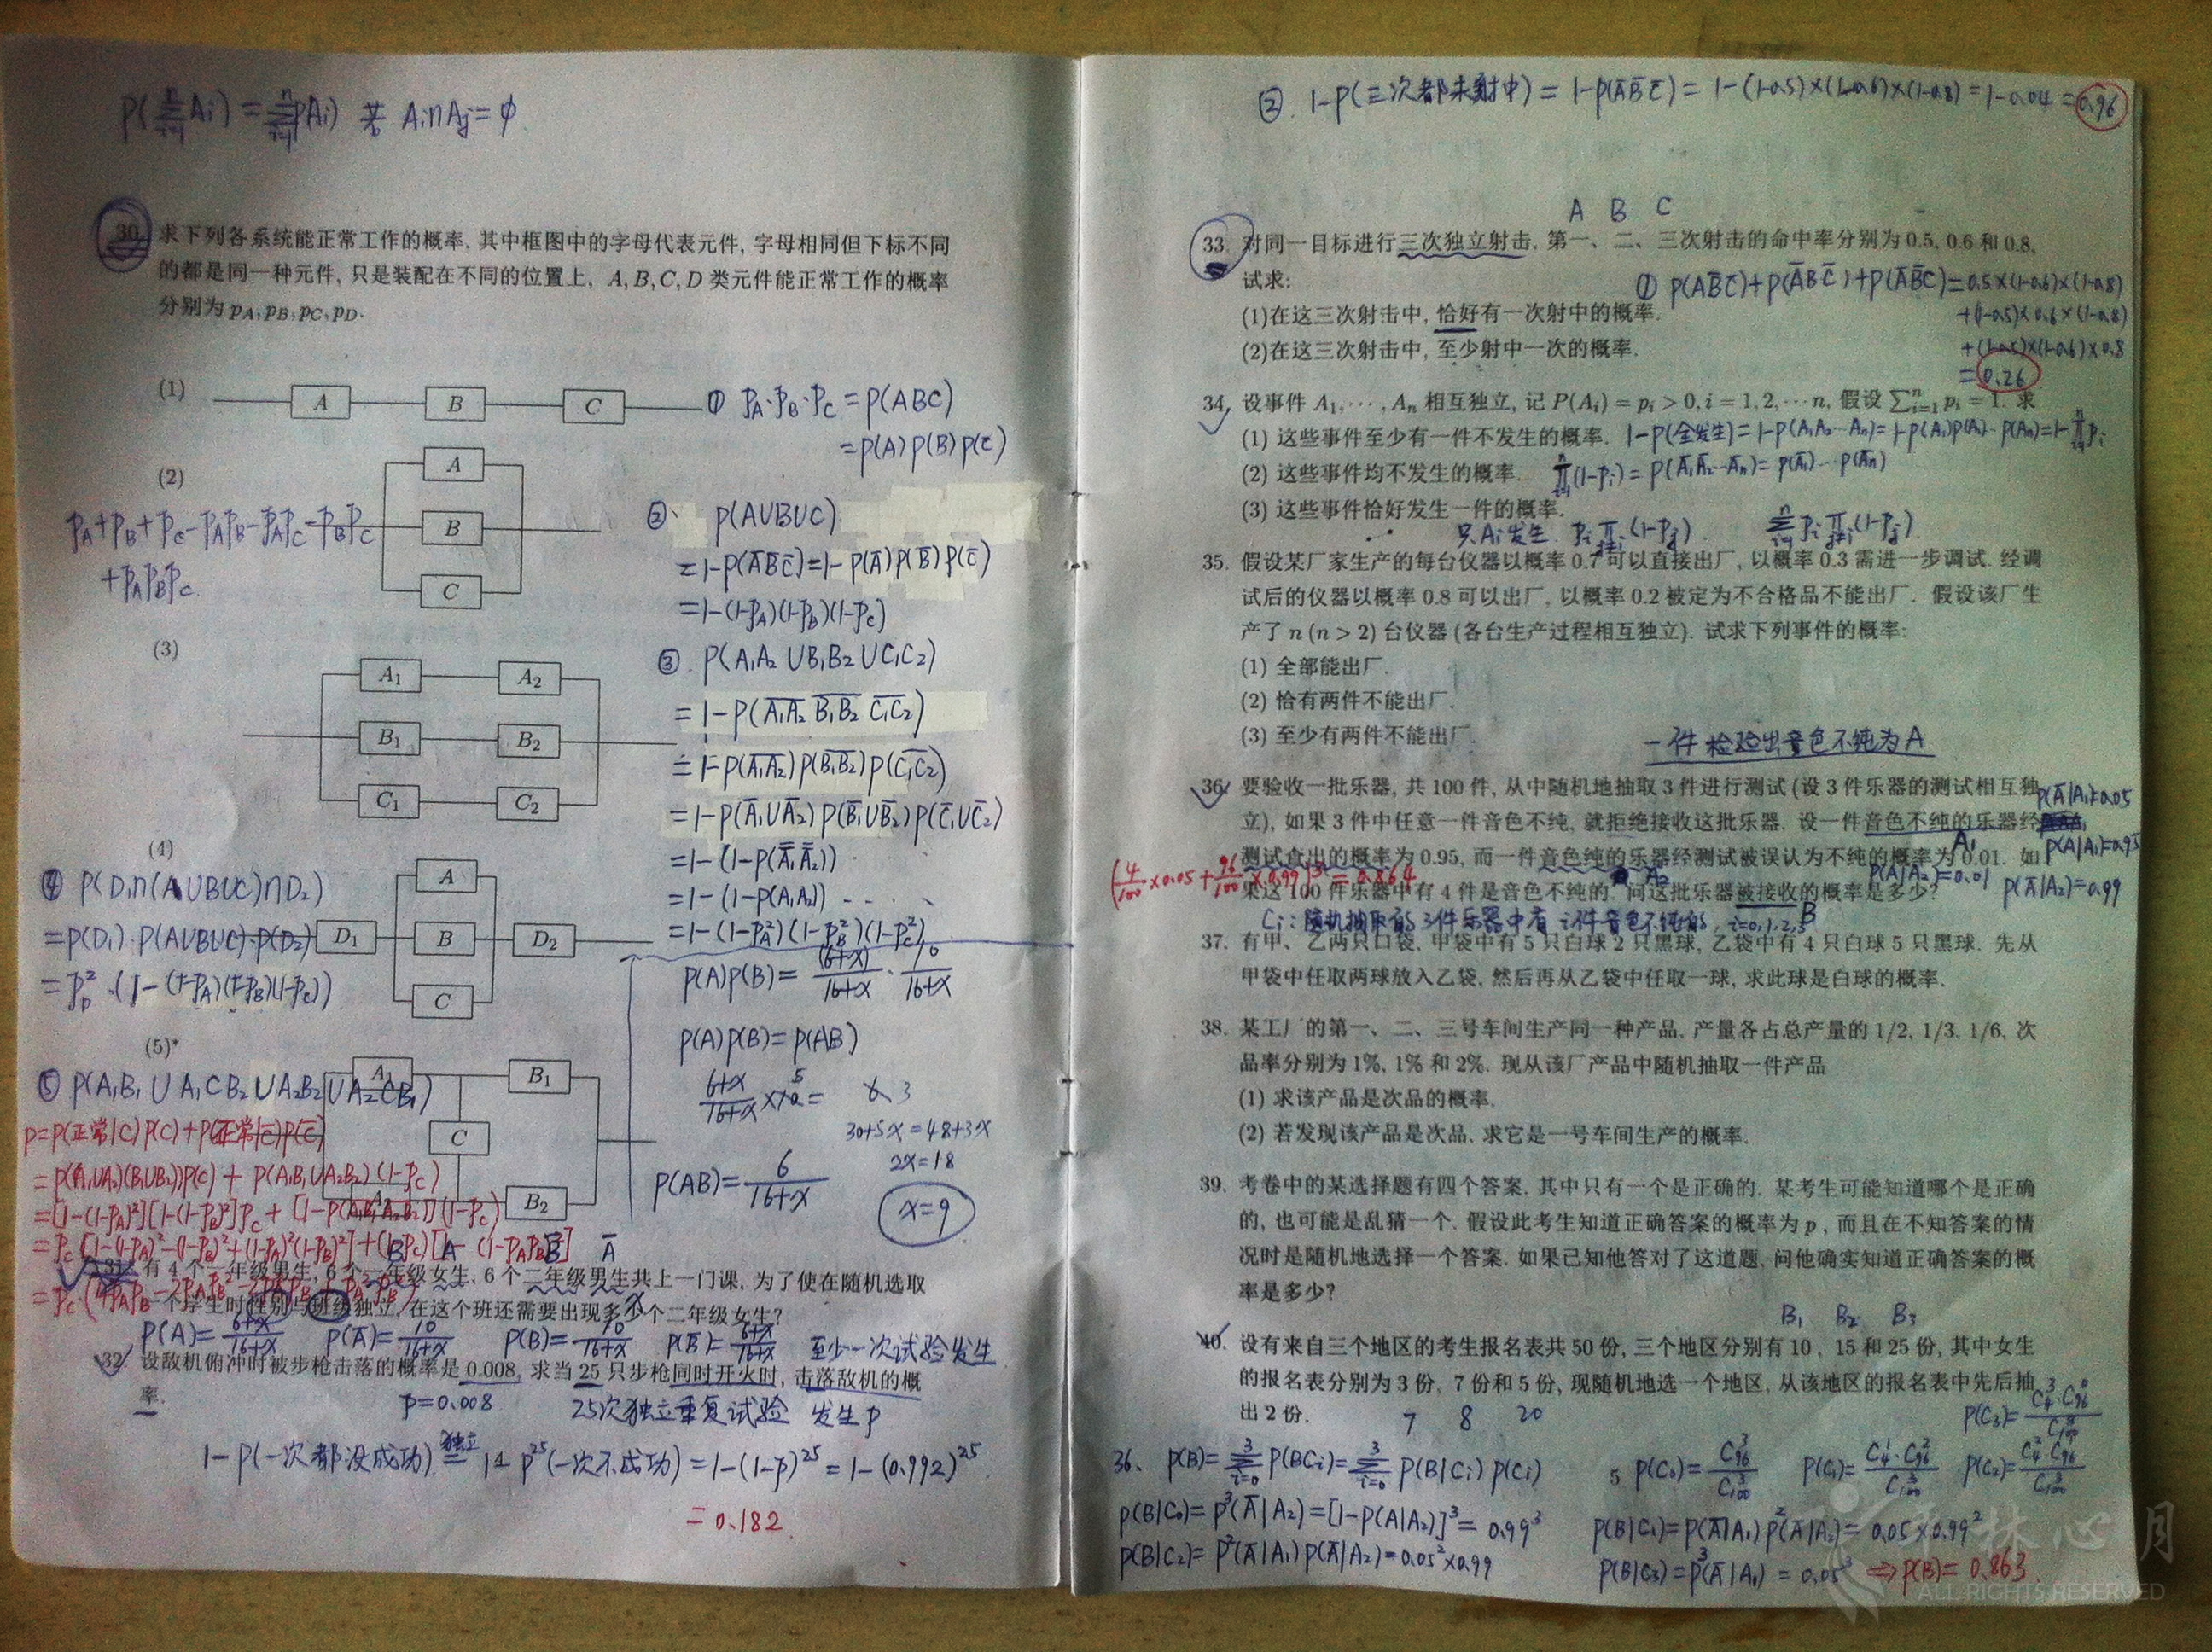 P(∑Ai)=∑P(Ai) 若 Ai∩Aj=φ
30. 求下列各系统能正常工作的概率, 其中框图中的字母代表元件, 字母相同但下标不同
的都是同一种元件, 只是装配在不同的位置上, A, B, C, D 类元件能正常工作的概率
分别为 pA, pB, pC, pD.
(1)
A B C
① PA·PB·PC = P(ABC)
=P(A)P(B)P(C)
(2)
A
B
C
PA+PB+PC-PAPB-PAPC-PBPC
+PAPBPC
② P(AUBUC)
=1-P(ĀB̄C̄)=1-P(Ā)P(B̄)P(C̄)
=1-(1-PA)(1-PB)(1-PC)
(3)
A1 A2
B1 B2
C1 C2
③ P(A1A2 U B1B2 U C1C2)
=1-P(A̅1̅A̅2̅ B̅1̅B̅2̅ C̅1̅C̅2̅)
=1-P(A̅1̅A̅2̅)P(B̅1̅B̅2̅)P(C̅1̅C̅2̅)
=1-P(Ā1UĀ2)P(B̄1UB̄2)P(C̄1UC̄2)
=1-(1-P(A1A2))
=1-(1-PA²)(1-PB²)(1-PC²)
(4)
A
D1 B D2
C
④ P(D1∩(AUBUC)∩D2)
=P(D1)·P(AUBUC)·P(D2)
=PD²·(1-(1-PA)(1-PB)(1-PC))
(5)*
A1 B1
C
A2 B2
⑤ P(A1B1 U A1CB2 U A2B2 U A2CB1)
P=P(正常|C)P(C)+P(正常|C̄)P(C̄)
=P(A1UA2)(B1UB2))P(C)+P(A1B1UA2B2)(1-PC)
P(A)P(B)=(6+x)/(16+x)·10/(16+x)
P(A)P(B)=P(AB)
30+5x=48+3x
2x=18
P(AB)=6/(16+x)
x=9
31. 有 4 个一年级男生, 6 个一年级女生, 6 个二年级男生共上一门课, 为了使在随机选取
一个学生时性别与班级独立, 在这个班还需要出现多少个二年级女生?
P(A)=(6+x)/(16+x) P(Ā)=10/(16+x) P(B)=10/(16+x) P(B̄)=(6+x)/(16+x) 至少一次试验发生
32. 设敌机俯冲时被步枪击落的概率是 0.008, 求当 25 只步枪同时开火时, 击落敌机的概
率.
P=0.008 25次独立重复试验 发生P
1-P(一次都没成功) 独立= 1-P²⁵(一次不成功)=1-(1-P)²⁵=1-(0.992)²⁵
=0.182
② 1-P(三次都未射中)=1-P(ĀB̄C̄)=1-(1-0.5)×(1-0.6)×(1-0.8)=1-0.04=0.96
A B C
33. 对同一目标进行三次独立射击, 第一、二、三次射击的命中率分别为 0.5, 0.6 和 0.8,
试求:
① P(AB̄C̄)+P(ĀBC̄)+P(ĀB̄C)=0.5×(1-0.6)×(1-0.8)
+(1-0.5)×0.6×(1-0.8)
+(1-0.5)×(1-0.6)×0.8
=0.26
(1)在这三次射击中, 恰好有一次射中的概率.
(2)在这三次射击中, 至少射中一次的概率.
34. 设事件 A1, ⋯, An 相互独立, 记 P(Ai) = pi > 0, i = 1, 2, ⋯ n, 假设 ∑ⁿᵢ₌₁ pi = 1. 求
(1) 这些事件至少有一件不发生的概率. 1-P(全发生)=1-P(A1A2⋯An)=1-P(A1)P(A2)⋯P(An)=1-∏Pi
(2) 这些事件均不发生的概率. ∏(1-Pi)=P(Ā1Ā2⋯Ān)=P(Ā1)⋯P(Ān)
(3) 这些事件恰好发生一件的概率.
只Ai发生 Pi∏(1-Pj) ∑Pi∏(1-Pj)
35. 假设某厂家生产的每台仪器以概率 0.7 可以直接出厂, 以概率 0.3 需进一步调试. 经调
试后的仪器以概率 0.8 可以出厂, 以概率 0.2 被定为不合格品不能出厂. 假设该厂生
产了 n (n > 2) 台仪器 (各台生产过程相互独立). 试求下列事件的概率:
(1) 全部能出厂.
(2) 恰有两件不能出厂.
(3) 至少有两件不能出厂.
一件检验出音色不纯为A
36. 要验收一批乐器, 共 100 件, 从中随机地抽取 3 件进行测试 (设 3 件乐器的测试相互独
立), 如果 3 件中任意一件音色不纯, 就拒绝接收这批乐器. 设一件音色不纯的乐器经
测试查出的概率为 0.95, 而一件音色纯的乐器经测试被误认为不纯的概率为 0.01. 如
果这 100 件乐器中有 4 件是音色不纯的, 问这批乐器被接收的概率是多少?
P(Ā|A1)=0.05
P(A|A1)=0.95
P(A|A2)=0.01
P(Ā|A2)=0.99
(4/100×0.05+96/100×0.99)³=0.864
Ci: 随机抽取的3件乐器中有i件音色不纯的, i=0,1,2,3 B
37. 有甲、乙两只口袋, 甲袋中有 5 只白球 2 只黑球, 乙袋中有 4 只白球 5 只黑球. 先从
甲袋中任取两球放入乙袋, 然后再从乙袋中任取一球, 求此球是白球的概率.
38. 某工厂的第一、二、三号车间生产同一种产品, 产量各占总产量的 1/2, 1/3, 1/6, 次
品率分别为 1%, 1% 和 2%. 现从该厂产品中随机抽取一件产品
(1) 求该产品是次品的概率.
(2) 若发现该产品是次品, 求它是一号车间生产的概率.
39. 考卷中的某选择题有四个答案, 其中只有一个是正确的. 某考生可能知道哪个是正确
的, 也可能是乱猜一个. 假设此考生知道正确答案的概率为 p , 而且在不知答案的情
况时是随机地选择一个答案. 如果已知他答对了这道题, 问他确实知道正确答案的概
率是多少?
B1 B2 B3
40. 设有来自三个地区的考生报名表共 50 份, 三个地区分别有 10 、15 和 25 份, 其中女生
的报名表分别为 3 份, 7 份和 5 份, 现随机地选一个地区, 从该地区的报名表中先后抽
出 2 份.
7 8 20
P(C3)=C₄³·C₉₆⁰/C₁₀₀³
36. P(B)=∑P(BCi)=∑P(B|Ci)P(Ci)
P(C0)=C₉₆³/C₁₀₀³ P(C1)=C₄¹·C₉₆²/C₁₀₀³ P(C2)=C₄²·C₉₆/C₁₀₀³
P(B|C0)=P³(Ā|A2)=[1-P(A|A2)]³=0.99³
P(B|C1)=P(Ā|A1)P²(Ā|A2)=0.05×0.99²
P(B|C2)=P²(Ā|A1)P(Ā|A2)=0.05²×0.99
P(B|C3)=P³(Ā|A1)=0.05³ ⇒P(B)=0.863
林心月
ALL RIGHTS RESERVED